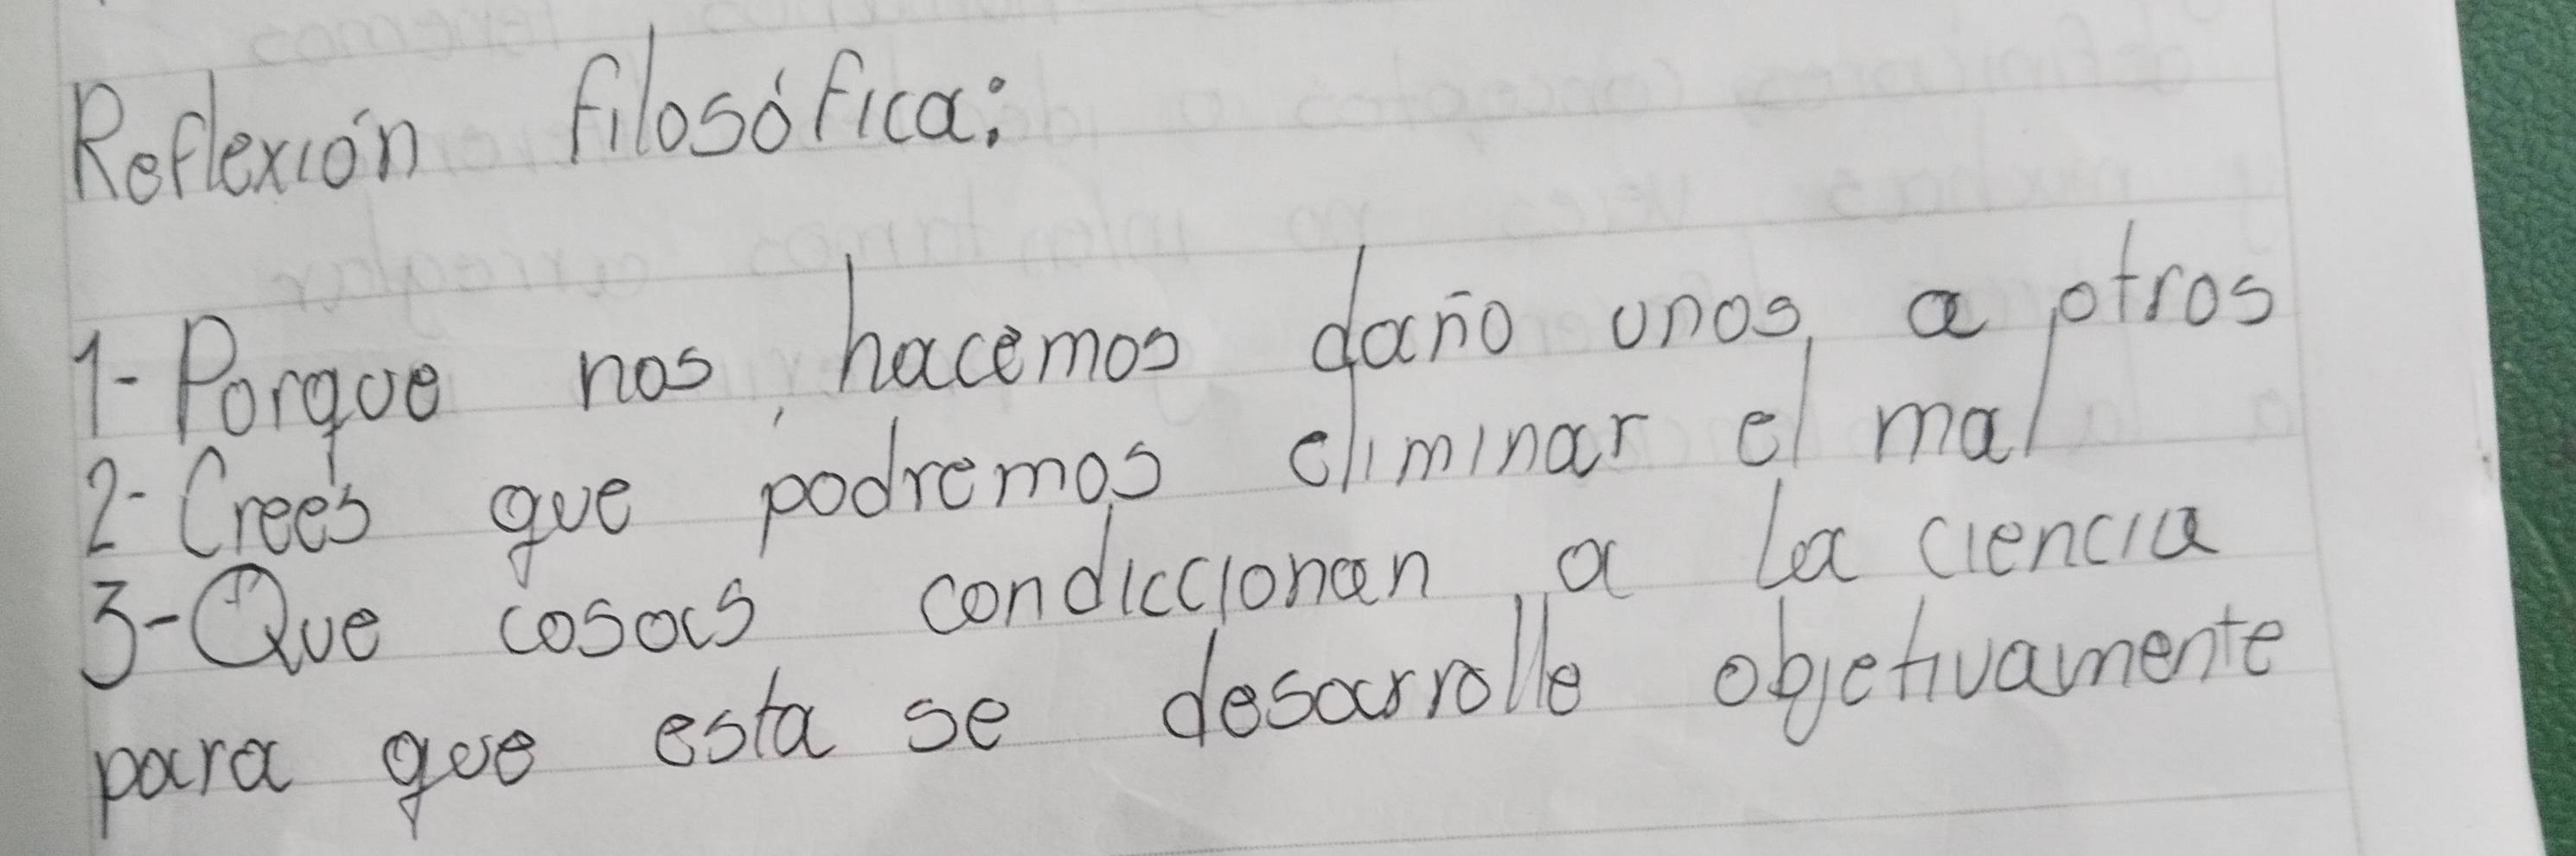 Reflexión filosófica:
1- Porque nos hacemos daño unos a otros
2- Crees que podremos eliminar el mal
3- Que cosas condiccionan a la ciencia
para que esta se desarrolle objetivamente